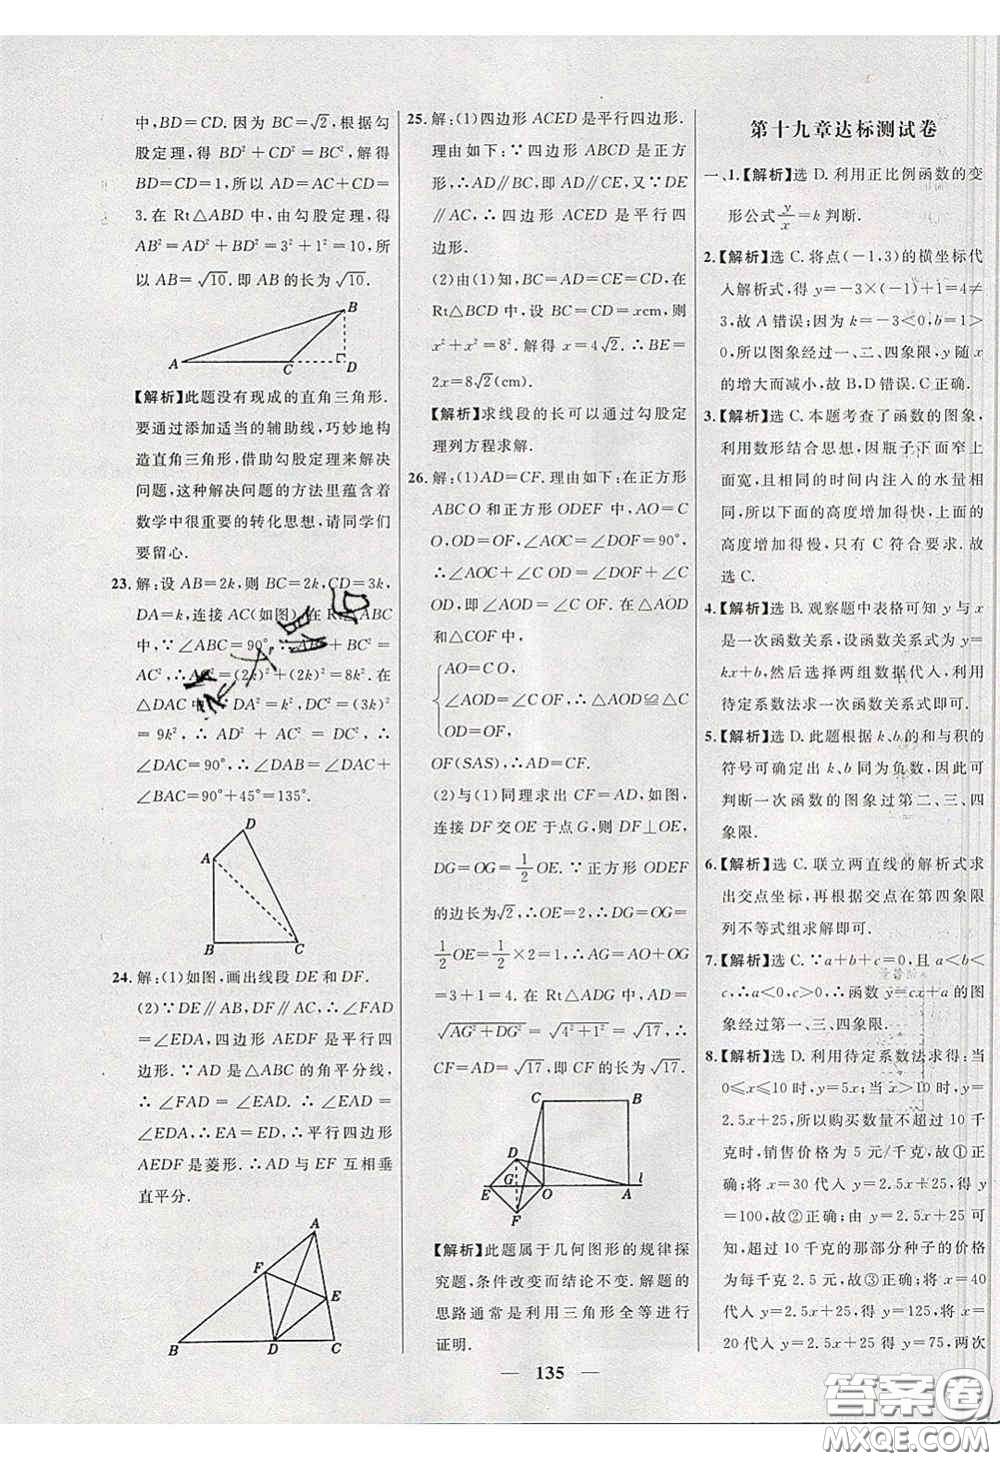 中，BD=CD. 因为 BC=√2，根据勾
股定理，得 BD²+CD²=BC²，解得
BD=CD=1，所以 AD=AC+CD=
3. 在 Rt△ABD 中，由勾股定理，得
AB²=AD²+BD²=3²+1²=10，所
以 AB=√10. 即 AB 的长为√10.
B
A
C
D
【解析】此题没有现成的直角三角形.
要通过添加适当的辅助线，巧妙地构
造直角三角形，借助勾股定理来解决
问题，这种解决问题的方法里蕴含着
数学中很重要的转化思想，请同学们
要留心.
23. 解：设 AB=2k，则 BC=2k，CD=3k，
DA=k，连接 AC(如图). 在 Rt△ABC
中，∵∠ABC=90°，∴AB²+BC²=
AC²，∴AC²=(2k)²+(2k)²=8k². 在
△DAC 中，∵DA²=k²，DC²=(3k)²=
9k²，∴AD²+AC²=DC²，∴
∠DAC=90°，∴∠DAB=∠DAC+
∠BAC=90°+45°=135°.
D
A
B
C
24. 解：(1)如图，画出线段 DE 和 DF.
(2)∵DE∥AB，DF∥AC，∴∠FAD
=∠EDA，四边形 AEDF 是平行四
边形. ∵AD 是△ABC 的角平分线，
∴∠FAD=∠EAD. ∴∠EAD=
∠EDA，∴EA=ED，∴平行四边形
AEDF 是菱形. ∴AD 与 EF 互相垂
直平分.
A
F
E
B
D
C
25. 解：(1)四边形 ACED 是平行四边形.
理由如下：∵四边形 ABCD 是正方
形，∴AD∥BC，即 AD∥CE. 又∵DE
∥AC，∴四边形 ACED 是平行四
边形.
(2)由(1)知，BC=AD=CE=CD，在
Rt△BCD 中，设 BC=CD=xcm，则
x²+x²=8². 解得 x=4√2，∴BE=
2x=8√2(cm).
【解析】求线段的长可以通过勾股定
理列方程求解.
26. 解：(1)AD=CF. 理由如下：在正方形
ABCO 和正方形 ODEF 中，AO=C
O，OD=OF，∠AOC=∠DOF=90°，
∴∠AOC+∠COD=∠DOF+∠C
OD，即∠AOD=∠COF. 在△AOD
和△COF 中，
AO=CO，
∠AOD=∠COF，∴△AOD≌△C
OD=OF，
OF(SAS)，∴AD=CF.
(2)与(1)同理求出 CF=AD，如图，
连接 DF 交 OE 于点 G，则 DF⊥OE，
DG=OG=1/2OE. ∵正方形 ODEF
的边长为√2，∴OE=2，∴DG=OG=
1/2OE=1/2×2=1，∴AG=AO+OG
=3+1=4. 在 Rt△ADG 中，AD=
√AG²+DG²=√4²+1²=√17，∴
CF=AD=√17，即 CF 的长为√17.
C
B
D
G
E
O
A
l
F
【解析】此题属于几何图形的规律探
究题，条件改变而结论不变. 解题的
思路通常是利用三角形全等进行
证明.
第十九章达标测试卷
一、1.【解析】选 D. 利用正比例函数的变
形公式y/x=k 判断.
2.【解析】选 C. 将点(-1,3)的横坐标代
入解析式，得 y=-3×(-1)+1=4≠
3，故 A 错误；因为 k=-3<0，b=1>
0，所以图象经过一、二、四象限，y 随 x
的增大而减小，故 B，D 错误. C 正确.
3.【解析】选 C. 本题考查了函数的图象，
利用数形结合思想，因瓶子下面窄上
面宽，且相同的时间内注入的水量相
同，所以下面的高度增加得快，上面的
高度增加得慢，只有 C 符合要求. 故
选 C.
4.【解析】选 B. 观察题中表格可知 y 与 x
是一次函数关系，设函数关系式为 y=
kx+b，然后选择两组数据代入，利用
待定系数法求一次函数关系式即可.
5.【解析】选 D. 此题根据 k、b 的和与积的
符号可确定出 k、b 同为负数，因此可
判断一次函数的图象过第二、三、四
象限.
6.【解析】选 C. 联立两直线的解析式求
出交点坐标，再根据交点在第四象限
列不等式组求解即可.
7.【解析】选 C. ∵a+b+c=0，且 a<b<
c，∴a<0，c>0，∴函数 y=cx+a 的图
象经过第一、三、四象限.
8.【解析】选 D. 利用待定系数法求得：当
0≤x≤10 时，y=5x；当 x>10 时，y=
2.5x+25，所以购买数量不超过 10 千
克时，销售价格为 5 元/千克，故①正
确；将 x=30 代入 y=2.5x+25，得 y
=100，故②正确；由 y=2.5x+25 得
超过 10 千克的那部分种子的价格
为每千克 2.5 元，故③正确；将 x=40
代入 y=2.5x+25，得 y=125，将 x=
20 代入 y=2.5x+25 得 y=75，两次
— 135 —
答案圈
MXQE.COM